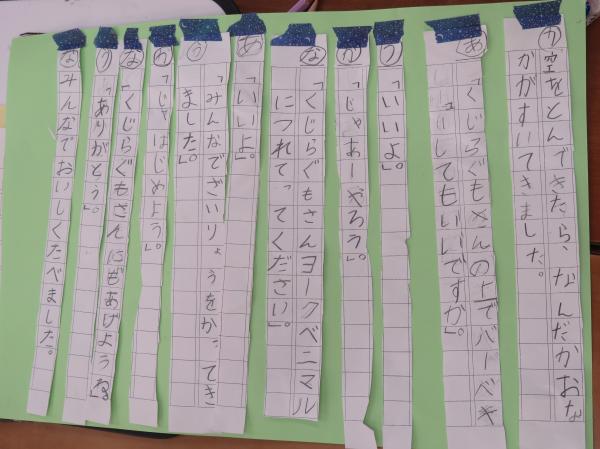 か 空をとんできたら、なんだかおな
かがすいてきました。
あ 「くじらぐもさんの上でバーベキ
ューしてもいいですか」。
う 「いいよ」。
か 「じゃあーやろう」。
な 「くじらぐもさんヨークベニマル
につれてってください」。
あ 「いいよ」。
う 「みんなでざいりょうをかってき
ました」。
か 「じゃはじめよう」。
な 「くじらぐもさんにもあげようね」
う 「ありがとう」。
な みんなでおいしくたべました。